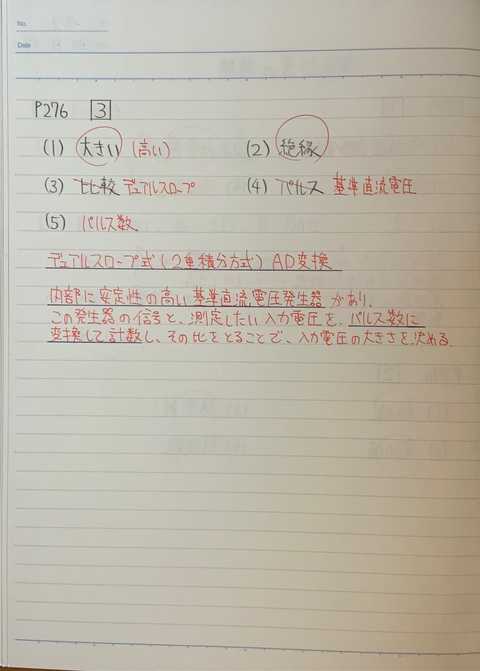 No.
Date
P276 3
(1) 大きい (高い) (2) 絶縁
(3) 比較 デュアルスロープ (4) パルス 基準直流電圧
(5) パルス数
デュアルスロープ式(2重積分方式) AD変換
内部に安定性の高い基準直流電圧発生器があり、
この発生器の信号と、測定したい入力電圧を、パルス数に
変換して計数し、その比をとることで、入力電圧の大きさを決める.